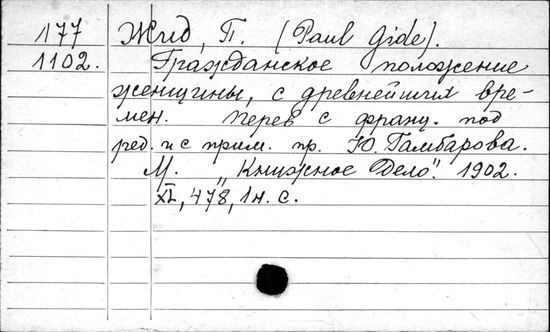 177 Жид, П. (Paul Gide).
1102. Гражданское положение
женщины, с древнейших вре-
мен. Перев с франц. под
ред. и с прим. пр. Ю. Гамбарова.
М. „Книжное Дело". 1902.
XI, 478, 1 н. с.